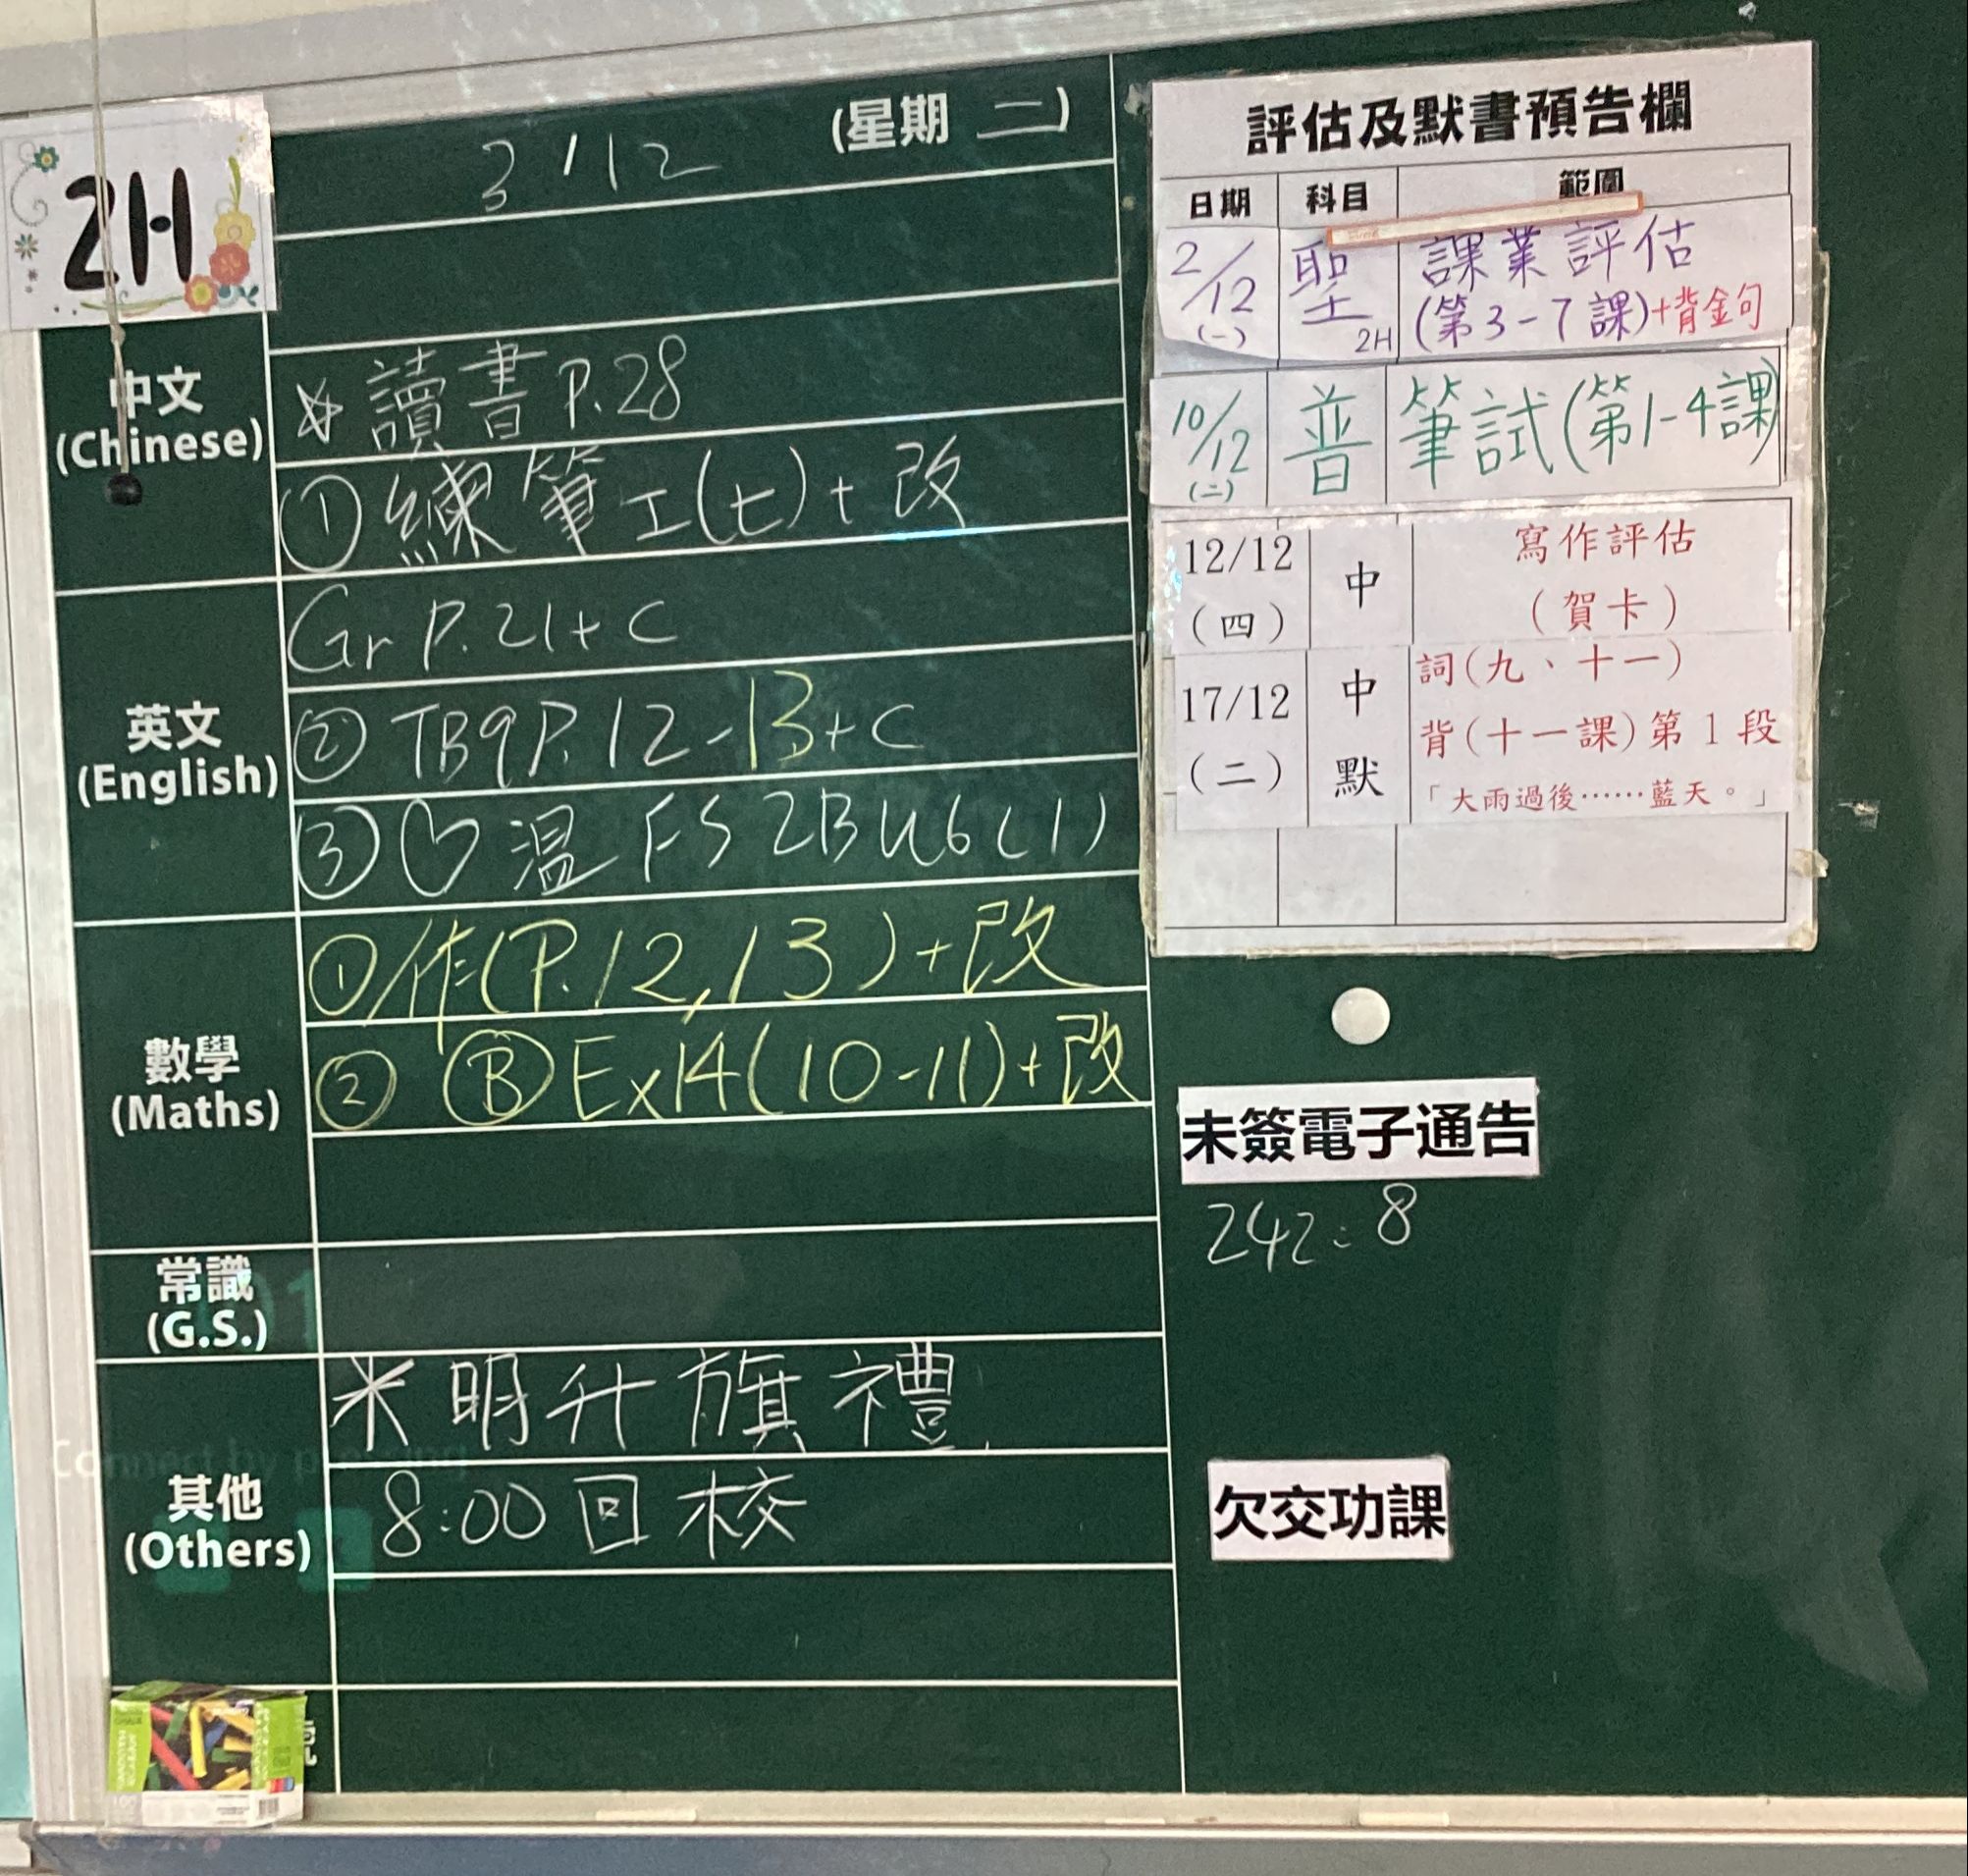 2H
3/12
(星期 二)
中文
(Chinese)
讀書 P.28
① 練筆工(七)+改
英文
(English)
Gr P.21+C
② TB9P.12-13+C
③ 溫 FS 2B U6(1)
數學
(Maths)
① 作(P.12,13)+改
② Ⓑ Ex14(10-11)+改
常識
(G.S.)
其他
(Others)
明升旗禮
8:00回校
評估及默書預告欄
日期 科目 範圍
2/12 (一) 聖 2H 課業評估
(第3-7課)+背金句
10/12 (二) 普 筆試(第1-4課)
12/12 (四) 中 寫作評估
(賀卡)
17/12 (二) 中默 詞(九、十一)
背(十一課)第1段
「大雨過後……藍天。」
未簽電子通告
242:8
欠交功課